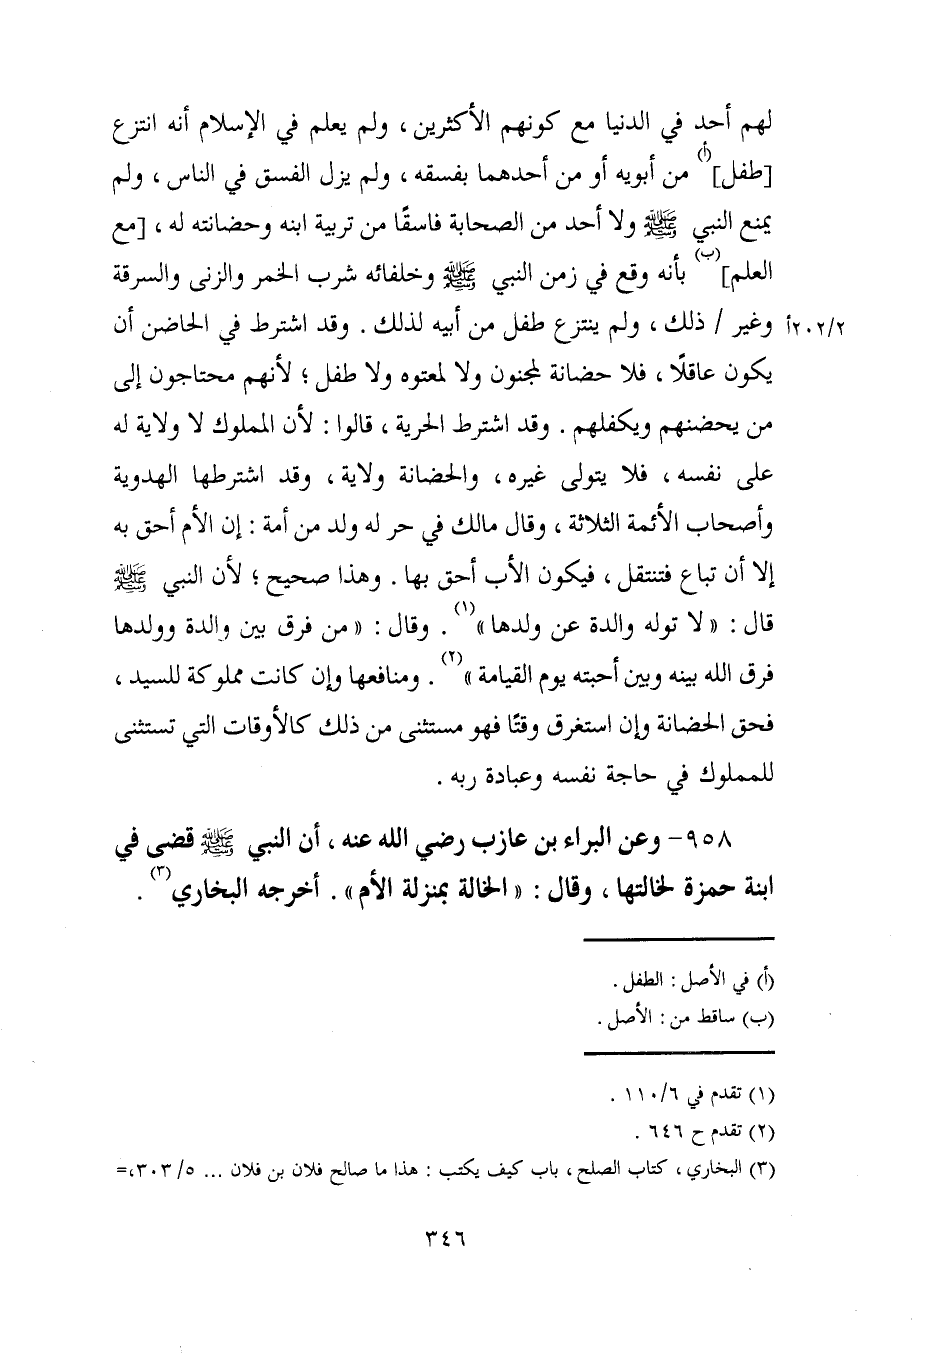 لهم أحد في الدنيا مع كونهم الأكثرين ، ولم يعلم في الإسلام أنه انتزع
[طفل](أ) من أبويه أو من أحدهما بفسقه ، ولم يزل الفسق في الناس ، ولم
يمنع النبي ﷺ ولا أحد من الصحابة فاسقًا من تربية ابنه وحضانته له ، [مع
العلم](ب) بأنه وقع في زمن النبي ﷺ وخلفائه شرب الخمر والزنى والسرقة
٢٠٢/٢أ وغير / ذلك ، ولم ينتزع طفل من أبيه لذلك . وقد اشترط في الحاضن أن
يكون عاقلًا ، فلا حضانة لمجنون ولا لمعتوه ولا طفل ؛ لأنهم محتاجون إلى
من يحضنهم ويكفلهم . وقد اشترط الحرية ، قالوا : لأن المملوك لا ولاية له
على نفسه ، فلا يتولى غيره ، والحضانة ولاية ، وقد اشترطها الهدوية
وأصحاب الأئمة الثلاثة ، وقال مالك في حر له ولد من أمة : إن الأم أحق به
إلا أن تباع فتنتقل ، فيكون الأب أحق بها . وهذا صحيح ؛ لأن النبي ﷺ
قال : « لا توله والدة عن ولدها »(١) . وقال : « من فرق بين والدة وولدها
فرق الله بينه وبين أحبته يوم القيامة »(٢) . ومنافعها وإن كانت مملوكة للسيد ،
فحق الحضانة وإن استغرق وقتًا فهو مستثنى من ذلك كالأوقات التي تستثنى
للمملوك في حاجة نفسه وعبادة ربه .
٩٥٨- وعن البراء بن عازب رضي الله عنه ، أن النبي ﷺ قضى في
ابنة حمزة لخالتها ، وقال : « الخالة بمنزلة الأم » . أخرجه البخاري(٣) .
(أ) في الأصل : الطفل .
(ب) ساقط من : الأصل .
(١) تقدم في ١١٠/٦ .
(٢) تقدم ح ٦٤٦ .
(٣) البخاري ، كتاب الصلح ، باب كيف يكتب : هذا ما صالح فلان بن فلان ... ٣٠٣/٥،=
٣٤٦